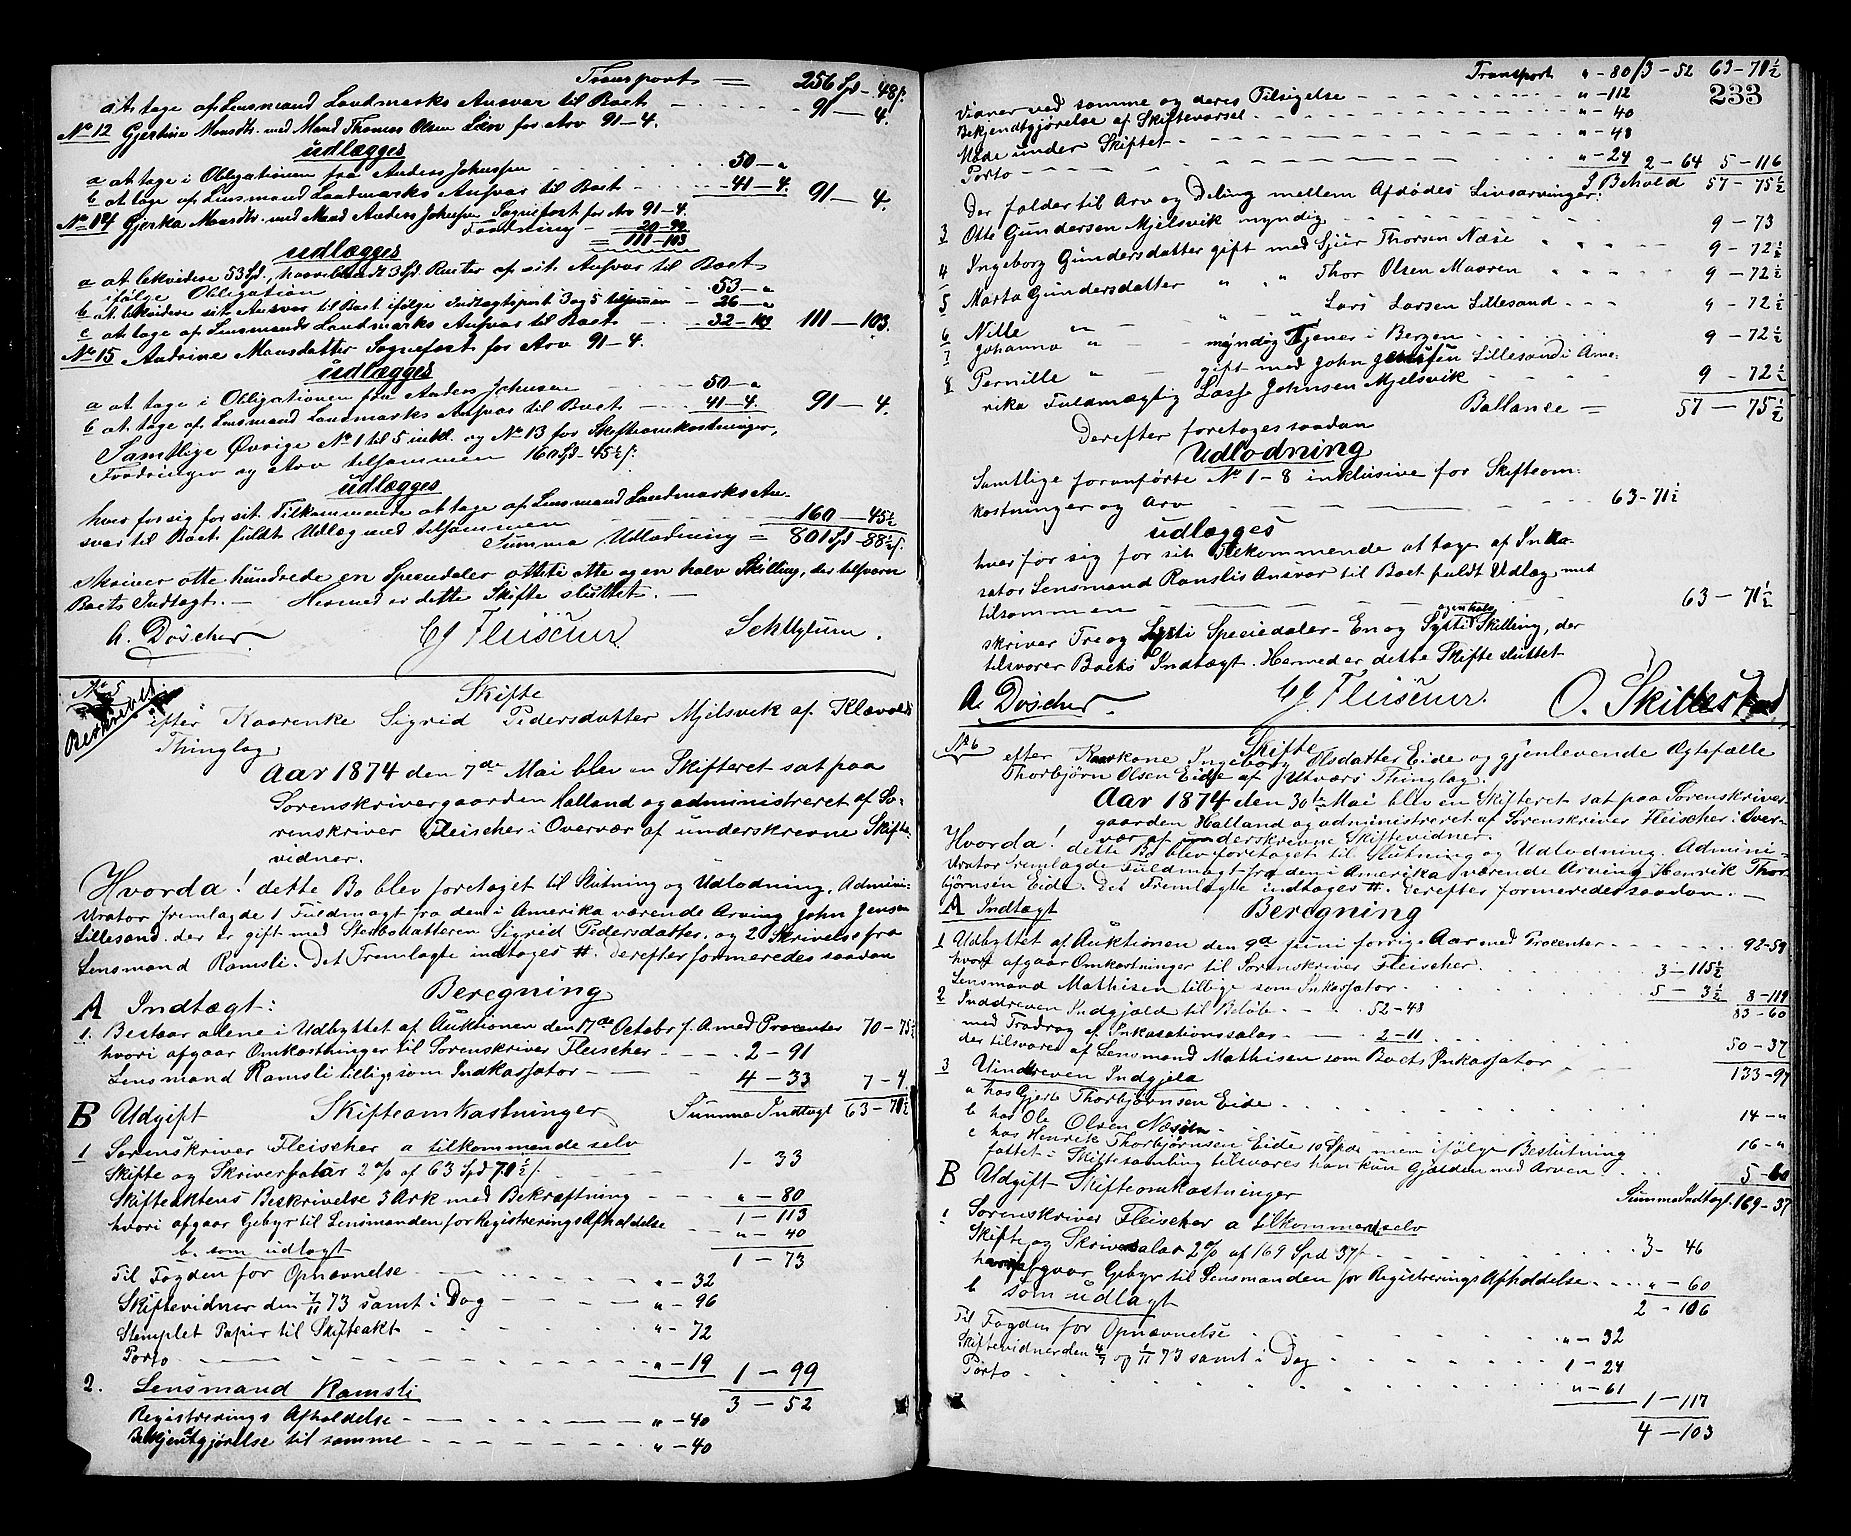 Transport = 256 Spd - 48 ß.
at tage af Lensmand Landmarks Ansvar til Boet - - - 91 - 4.
No 12 Gjertine Monsdtr. med Mand Thomas Olsen Lien for Arv 91 - 4.
udlægges
a at tage i Obligationen fra Anders Johnssen 50 - "
b at tage af Lensmand Landmarks Ansvar til Boet - - - 41 - 4. 91 - 4.
No 14 Gjerka Monsdtr. med Mand Anders Johnsen Sognefost for Arv 91 - 4.
Fordring - 20 - 99
= 111 - 103
udlægges
a at likvidere 53 Spd, hvoriblandt 3 Spd Renter af sit Ansvar til Boet
ifølge Obligation 53 - "
b at likvidere sit Ansvar til Boet ifølge Indtægtspost 3 og 5 tilsammen - 26 - "
c at tage af Lensmands Landmarks Ansvar til Boet - 32 - 103 111 - 103.
No 15 Andrine Monsdatter Sognefost for Arv 91 - 4.
udlægges
a at tage i Obligationen fra Anders Johnsen 50 - "
b at tage af Lensmand Landmarks Ansvar til Boet - 41 - 4. 91 - 4.
Samtlige Øvrige No 1 til 5 inkl. og No 13 for Skifteomkostninger,
Fordringer og Arv tilsammen 160 Spd - 45½ ß.
udlægges
hver for sig for sit Tilkommende at tage af Lensmand Landmarks An-
svar til Boet fuldt Udlæg med tilsammen 160 - 45½
Summa Udlodning = 801 Spd - 88½ ß.
skriver otte hundrede en Speciedaler otteti otte og en halv Skilling, der tilsvarer
Boets Indtægt. - Hermed er dette Skifte sluttet. -
A. Døscher CG Fleischer
No 5
Beskrevet
Skifte
efter Kaarenke Sigrid Pedersdatter Mjelsvik af Klævolds
Thinglag
Aar 1874 den 7de Mai blev en Skifteret sat paa
Sorenskrivergaarden Halland og administreret af So-
renskriver Fleischer i Overvær af underskrevne Skifte-
vidner.
Hvorda! dette Bo blev foretaget til Slutning og Udlodning. Admini-
strator fremlagde 1 Fuldmagt fra den i Amerika værende Arving John Jensen
Lillesand der er gift med Sterbodatteren Sigrid Pedersdatter, og 2 Skrivelse fra
Lensmand Ramsli. Det Fremlagte indtages #. Derefter formeredes saadan
Beregning
A Indtægt:
1. Bestaar alene i Udbyttet af Auktionen den 17de Octobr f. A. med Procenter 70 - 75½
hvori afgaar Omkostninger til Sorenskriver Fleischer - - - 2 - 91
Lensmand Ramsli tillige som Indkassator - - 4 - 33 7 - 4
B Udgift Skifteomkostninger Summa Indtægt 63 - 71½
1 Sorenskriver Fleischer a tilkommende selv
Skifte og Skriversalær 2% af 63 Spd 71½ ß. - 1 - 33
Skifteaktens Beskrivelse 3 Ark med Bekræftning - - - " - 80
1 - 113
hvori afgaar Gebyr til Lensmanden for Registrerings Afholdelse " - 40
b. som udlagt 1 - 73
Til Fogden for Opnævnelse - - - " - 32
Skiftevidner den 7/11 73 samt i Dag - - - " - 96
Stemplet Papir til Skifteakt - - - " - 72
Porto - - - " - 19 1 - 99
2. Lensmand Ramsli 3 - 52
Registrerings Afholdelse - - - " - 40
Bekjendtgjørelse til samme - - - " - 40
Transport " - 80 / 3 - 52 63 - 71½
233
Vidner ved samme og deres Tilsigelse - - - " - 112
Bekjendtgjørelse af Skiftevarsel - - - " - 40
Møde under Skiftet - - - " - 48
Porto - - - " - 24 2 - 64 5 - 116
I Behold 57 - 75½
Der falder til Arv og Deling mellem Afdødes Livsarvinger:
3 Otto Gundersen Mjelsvik myndig - - - 9 - 73
4 Ingeborg Gundersdatter gift med Sjur Thorsen Næse 9 - 72½
5 Marta Gundersdatter " " Thor Olsen Maaren 9 - 72½
6 Nille " - " - " Lars Larsen Lillesand - - - 9 - 72½
7 Johanna " - myndig Tjener i Bergen 9 - 72½
8 Pernille " - gift med John Jensen Lillesand i Ame-
rika Fuldmægtig Lasse Johnsen Mjelsvik 9 - 72½
Ballance = 57 - 75½
Derefter foretoges saadan
Udlodning
Samtlige foranførte No 1 - 8 inklusive for Skifteom-
kostninger og Arv - - - 63 - 71½
udlægges
hver for sig for sit Tilkommende at tage af Inkas-
sator Lensmand Ramslis Ansvar til Boet fuldt Udlæg med
tilsammen - - - 63 - 71½
skriver Tre og Syti Speciedaler - En og Sytti og en halv Skilling, der
tilsvarer Boets Indtægt. Hermed er dette Skifte sluttet
A. Døscher. CG Fleischer. O. Skillestad
No 6
Skifte
efter Kaarkone Ingeborg Olsdatter Eide og gjenlevende Ægtefælle
Thorbjørn Olsen Eide af Utværs Thinglag.
Aar 1874 den 30te Mai blev en Skifteret sat paa Sorenskriver-
gaarden Halland og administreret af Sorenskriver Fleischer i Over-
vær af underskrevne Skiftevidner.
Hvorda! dette Bo blev foretaget til Slutning og Udlodning. Admini-
strator fremlagde Fuldmagt fra den i Amerika værende Arving Henrik Thor-
bjørnsen Eide. Det Fremlagte indtages #. Derefter formeredes saadan. -
A Indtægt Beregning
1 Udbyttet af Auktionen den 9de Juni forrige Aar med Procenter - - - 92 - 59
hvori afgaar Omkostninger til Sorenskriver Fleischer. 3 - 115½
Lensmand Mathisen tillige som Inkassator - - - 5 - 3½ 8 - 119
83 - 60
2 Inddreven Indgjæld til Beløb - - - 52 - 48
med Fradrag af Inkasationssalær - - - 2 - 11
der tilsvares af Lensmand Mathisen som Boets Inkassator 50 - 37
133 - 97
3 Uinddreven Indgjæld
a hos Gjert Thorbjørnsen Eide - - - 14 - "
b hos Ole Olsen - - - 16 - "
c hos Henrik Thorbjørnsen Eide 10 Spd, men ifølge Beslutning
fattet i Skiftesamling tilsvares han kun Gjælden med Arven 5 - 60
B Udgift Skifteomkostninger Summa Indtægt 169 - 37
1 Sorenskriver Fleischer a tilkommende selv
Skifte og Skriversalær 2% af 169 Spd 37 ß - - - 3 - 46
hvori afgaar Gebyr til Lensmanden for Registrerings Afholdelse " - 60
b som udlagt 2 - 106
Til Fogden for Opnævnelse " - 32
Skiftevidner den 4/7 og 1/11 73 samt i Dag - - - 1 - 24
Porto - - - " - 61 1 - 117
4 - 103